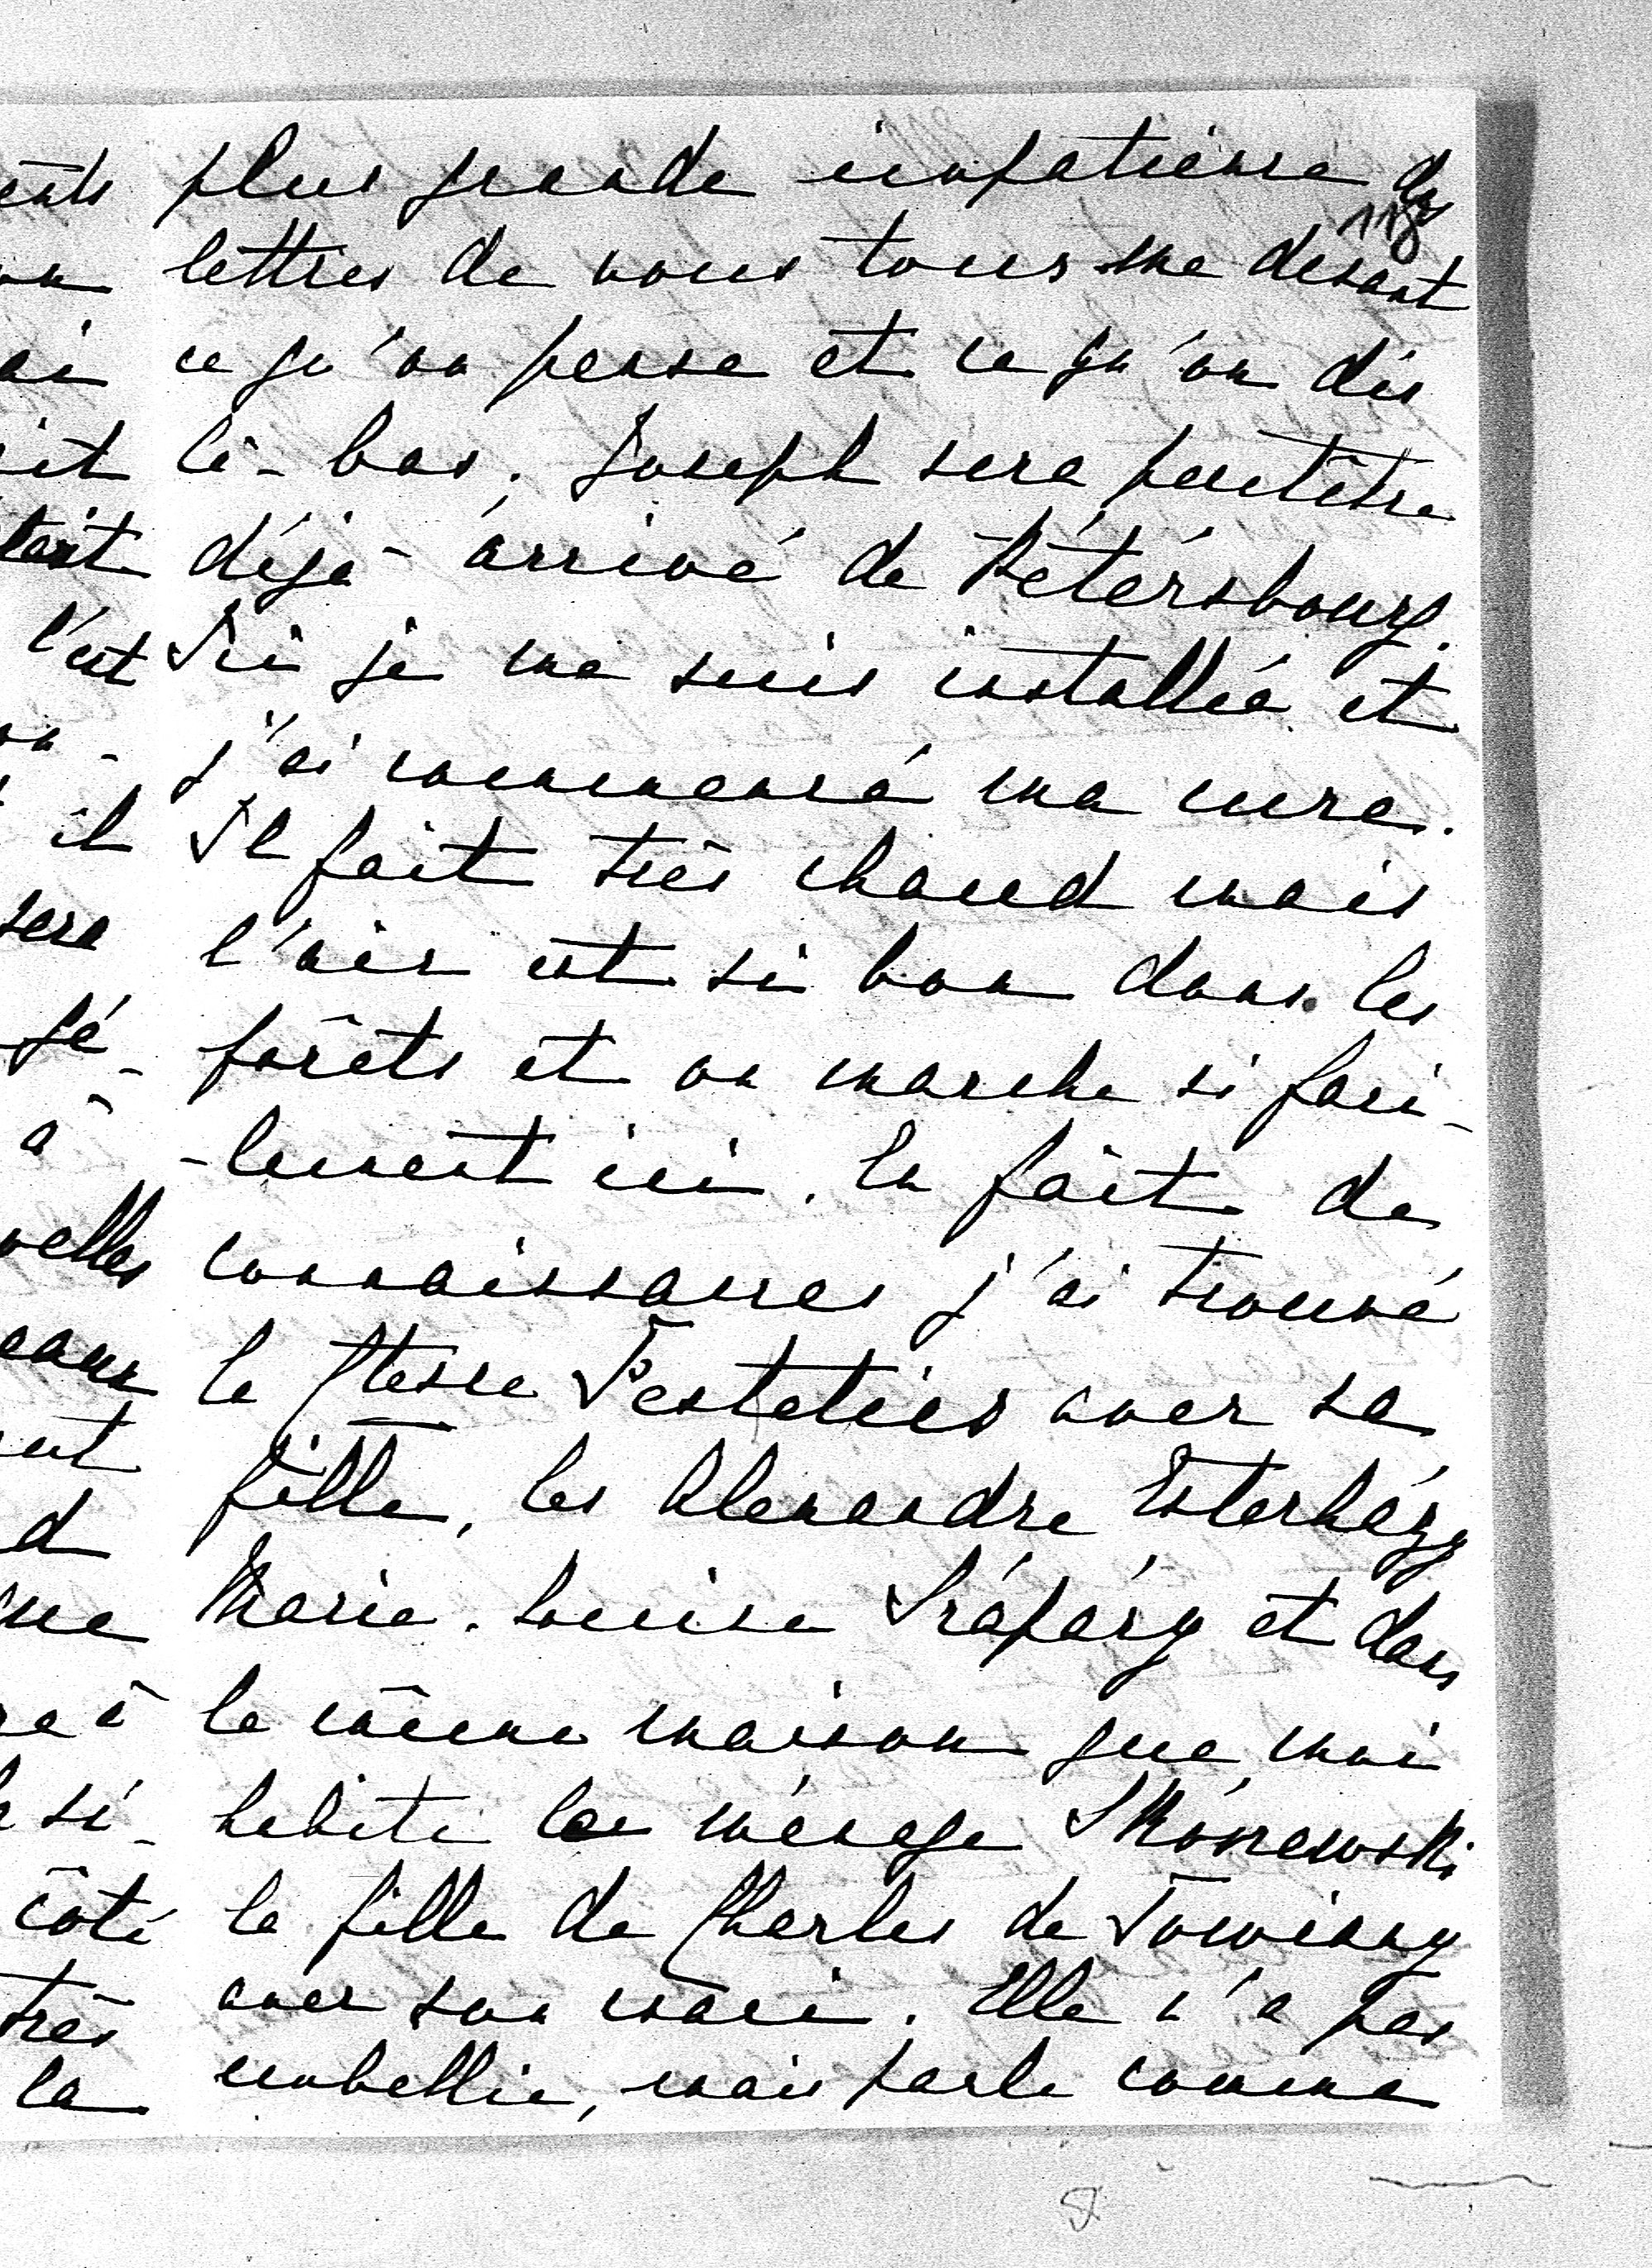 plus grande impatience des
118
lettres de vous tous me disant
ce qu'on pense et ce qu'on dis
là-bas. Joseph sera peutêtre
déjà arrivé de Pétérsbourg.
Ici je me suis installée et
j'ai commencé ma cure.
Il fait très chaud mais
l'air est si bon dans les
forêts et on marche si faci-
-lement ici. En fait de
connaissances j'ai trouvé
la Ctesse Festetics avec sa
fille, les Alexandre Esterházy
Marie-Louise et dans
la même maison que moi
habite le ménage
la fille de Charles de
avec son mari. Elle n'a pas
embellie, mais parle comme
ents
on
ai
it
tait
c'est
on-
il
sera
à
velles
eaux
ent
d
que
re à
si-
côté
très
la